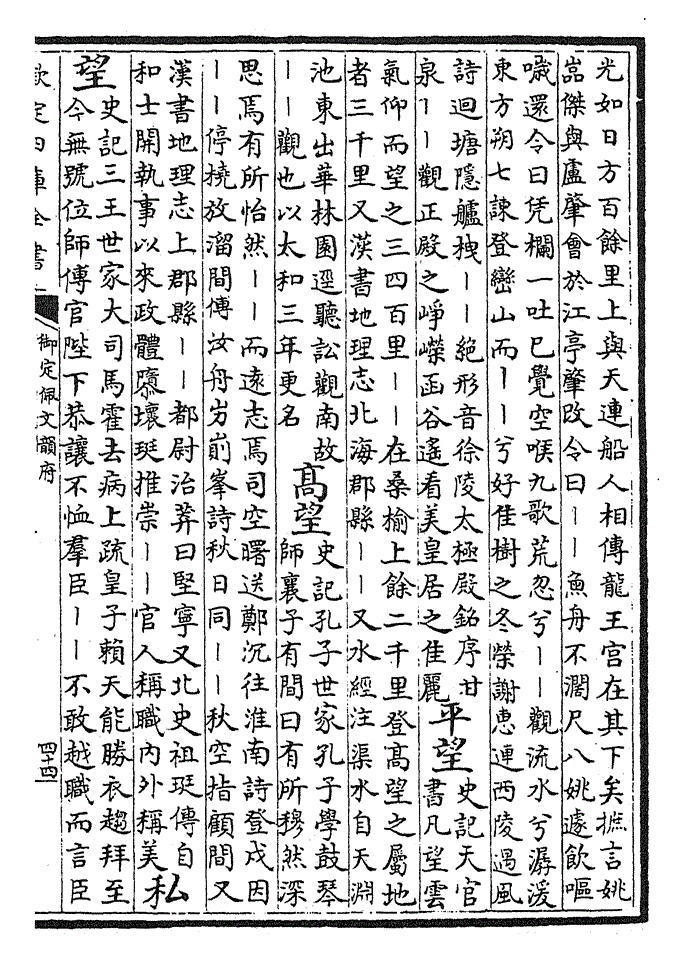 光如日方百餘里上與天連船人相傳龍王宫在其下矣摭言姚
嵓傑與盧肇會於江亭肇改令曰丨丨魚舟不濶尺八姚遽飲嘔
噦還令曰凭欄一吐已覺空喉九歌荒忽兮丨丨觀流水兮潺湲
東方朔七諫登巒山而丨丨兮好佳樹之冬榮謝恵連西陵遇風
詩迴塘隱艫拽丨丨絶形音徐陵太極殿銘序甘
泉丨丨觀正殿之崢嶸函谷遙看美皇居之佳麗
平望
史記天官
書凡望雲
氣仰而望之三四百里丨丨在桑榆上餘二千里登髙望之屬地
者三千里又漢書地理志北海郡縣丨丨又水經注渠水自天淵
池東出華林園逕聽訟觀南故
丨丨觀也以太和三年更名
髙望
史記孔子世家孔子學鼓琴
師襄子有間曰有所穆然深
思焉有所怡然丨丨而遠志焉司空曙送鄭況往淮南詩登戍因
丨丨停橈放溜間傳汝舟岃崱峯詩秋日同丨丨秋空指顧間又
漢書地理志上郡縣丨丨都尉治莽曰堅寧又北史祖珽傳自
和士開執事以來政體隳壞珽推崇丨丨官人稱職内外稱美
私望
史記三王世家大司馬霍去病上疏皇子賴天能勝衣趨拜至
今無號位師傅官陛下恭讓不恤羣臣丨丨不敢越職而言臣
欽定四庫全書
御定佩文韻府
四十四